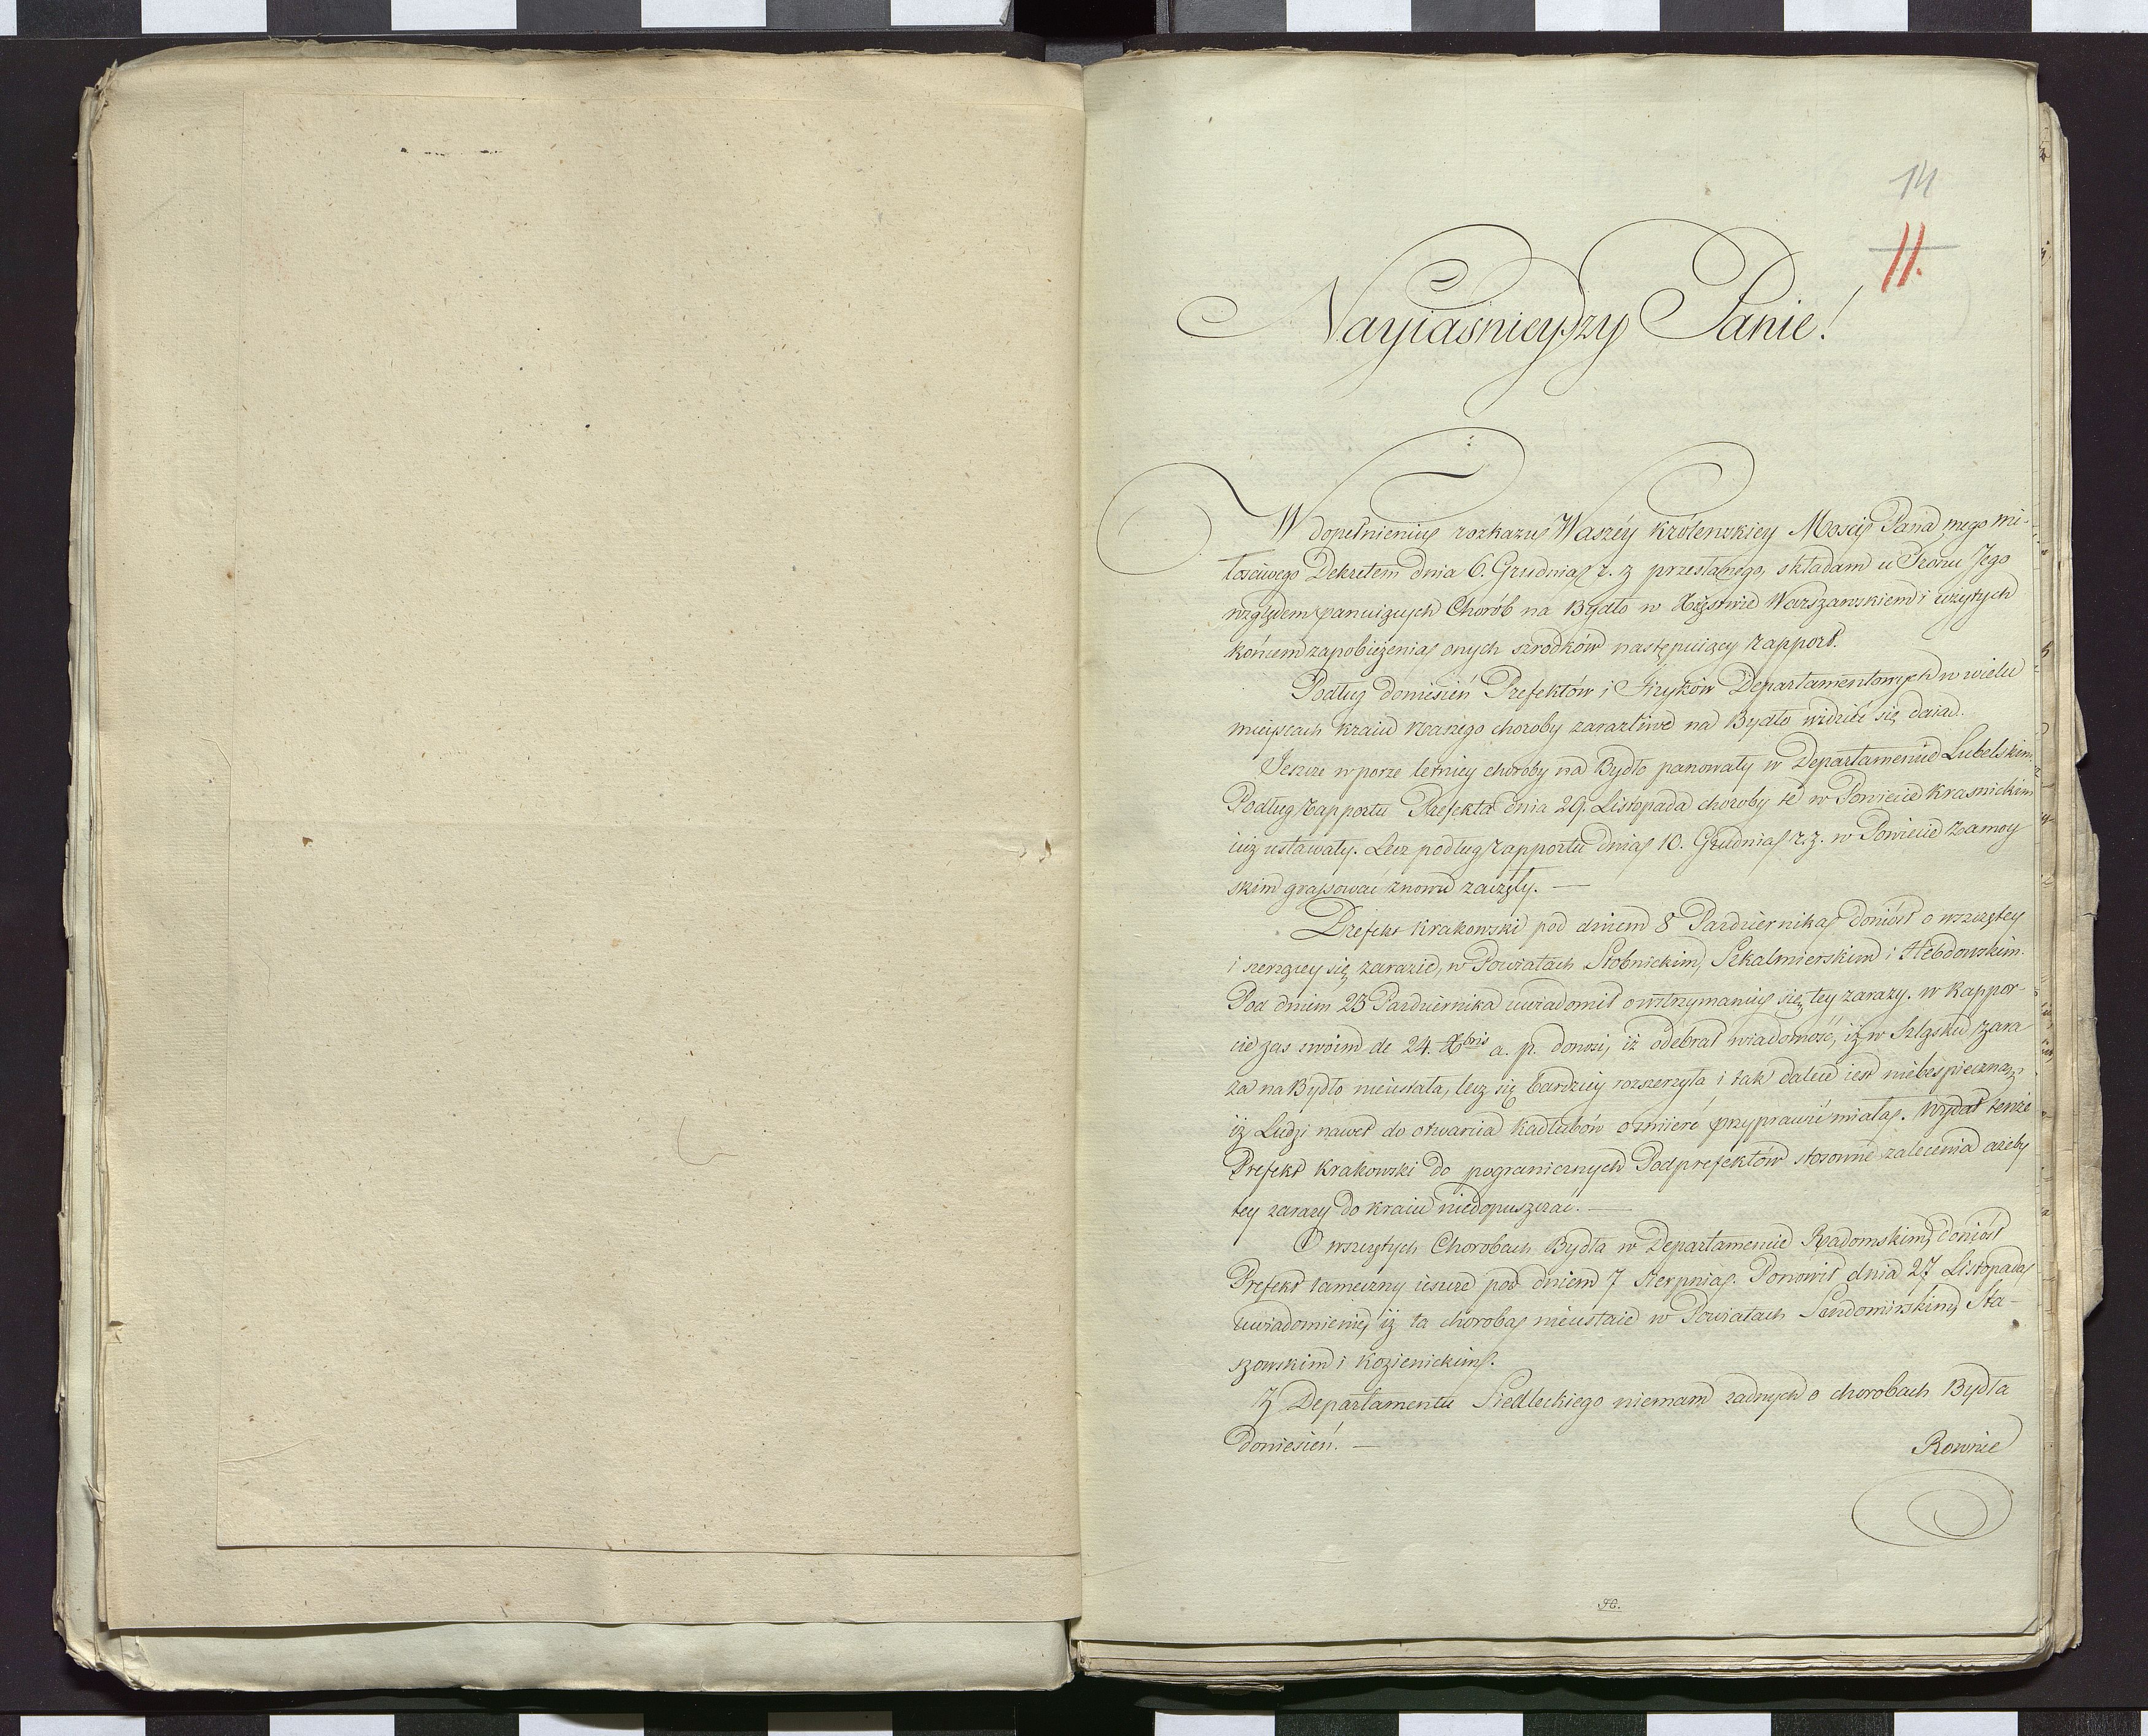 14
11.
Nayiaśnieyszy Panie!
W dopełnieniu rozkazu Waszéy Królewskiey Mości Pana mego mi-
łościwego Dekretem dnia 6. Grudnia r. z przesłanego, składam u Tronu Jego
względem panuiących Chorób na Bydło w Xięstwie Warszawskiem i użytych
końcem zapobieżenia onych szrodków następuiący rapport.
Podług doniesień Prefektów i Fizyków Departamentowych w wielu
mieyscach kraiu naszego choroby zaraźliwe na Bydło widzieć się daią.
Jeszcze w porze letniey choroby na Bydło panowały w Departamencie Lubelskim.
Podług rapportu Prefekta dnia 29. Listopada choroby te w Powiecie Krasnickim
iuż ustawały. Lecz podług rapportu dnia 10. Grudnia r. z. w Powiecie Zamoy
skim grassować znowu zaczęły. —
Prefekt Krakowski pod dniem 8 Pazdziernika doniósł o wszczętey
i szerzącey się zarazie, w Powiatach Stobnickim, Szkalmierskim i Hebdowskim.
Pod dniem 23 Pazdziernika uwiadomił o wstrzymaniu się tey zarazy. w Rappor-
cie zas swoim de 24. Xbris a. p. donosi, iż odebrał wiadomość, iż w Szlązku zara
za na Bydło nieustała, lecz się bardziey rozszerzyła i tak dalece iest niebespieczną,
iż Ludzi nawet do otwarcia kadłubów o śmierć przyprawić miała. Wydał tenże
Prefekt Krakowski do pogranicznych Podprefektów stosowne zalecenia ażeby
tey zarazy do kraiu niedopuszczać. —
O wszczętych Chorobach Bydła w Departamencie Radomskim, doniósł
Prefekt tameczny ieszcze pod dniem 7 Sierpnia. Ponowił dnia 27 Listopada
uwiadomienie, iż ta choroba nieustaie w Powiatach Sandomirskim, Sta-
szowskim i Kozienickim.
Z Departamentu Siedleckiego niemam żadnych o chorobach Bydła
doniesień. —
Rownie